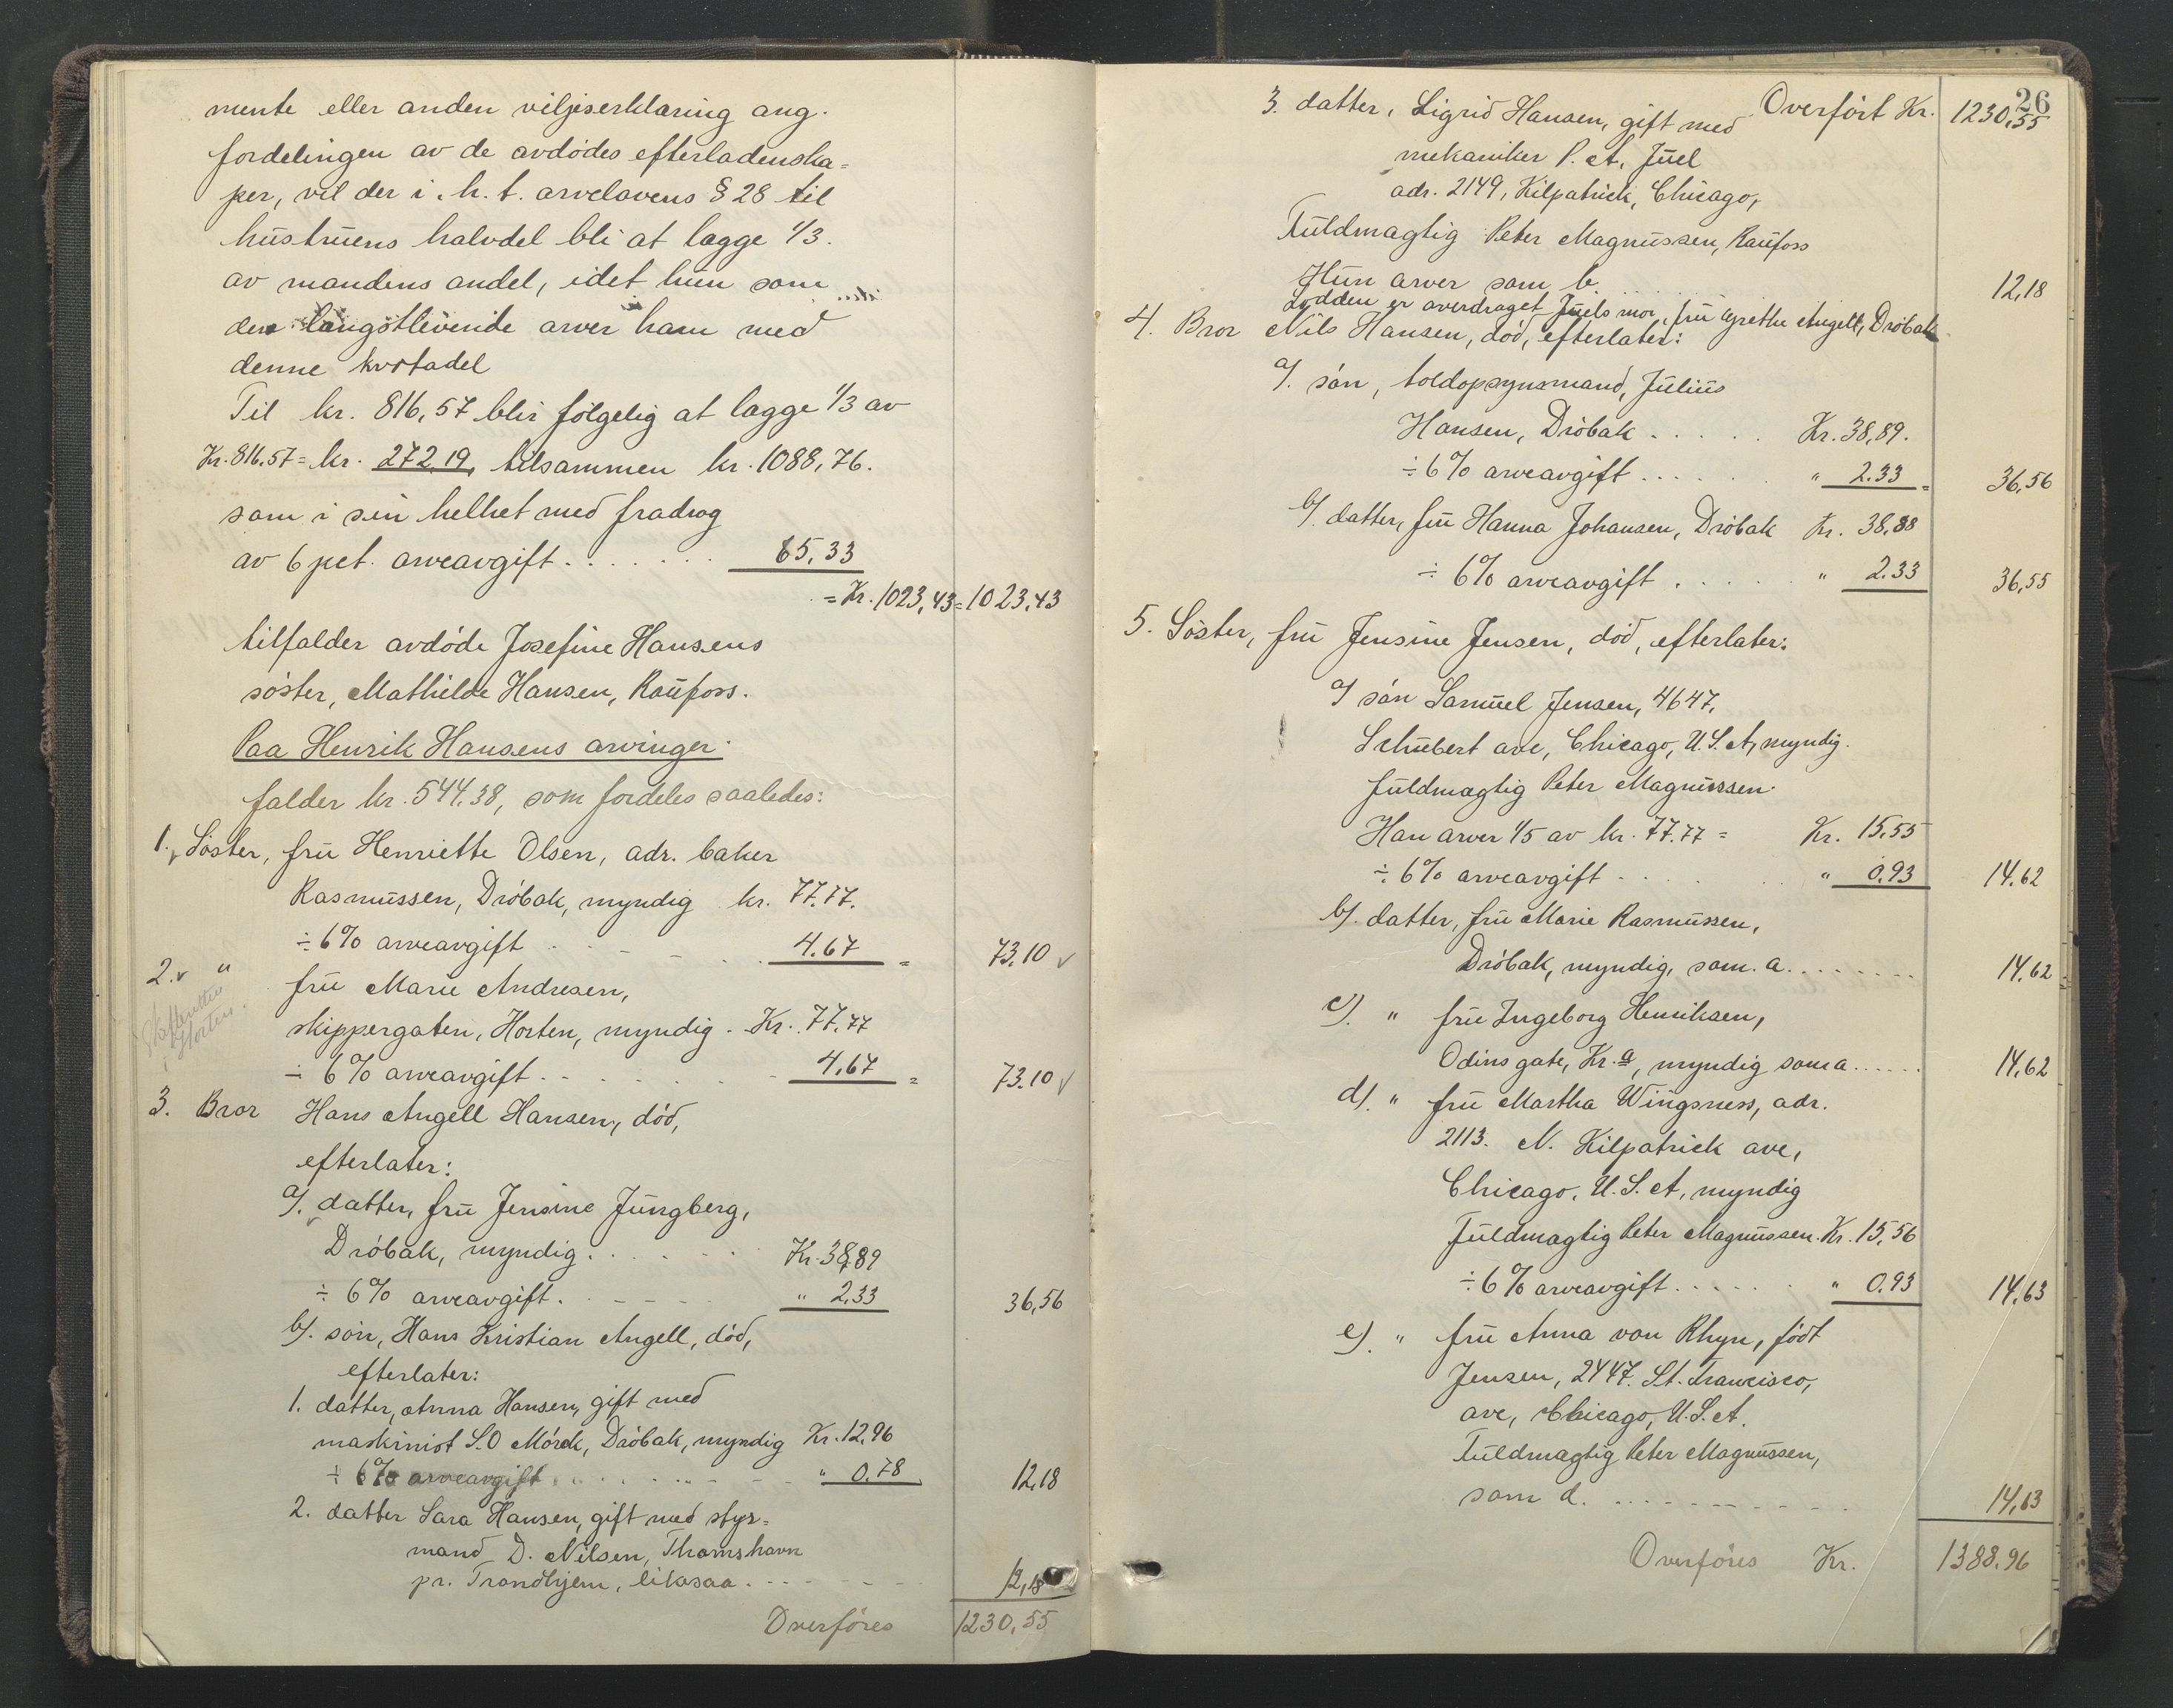 mente eller anden viljeserklæring ang.
fordelingen av de avdödes efterladenska=
per, vil der i h. t. arvelovens § 28 til
hustruens halvdel bli at lægge 1/3.
av mandens andel, idet hun som
den længstlevende arver ham med
denne kvotadel
Til kr. 816,57 blir fölgelig at lægge 1/3 av
Kr. 816.57 = kr. 272.19, tilsammen kr. 1088,76.
som i sin helhet med fradrag
av 6 pct. arveavgift . . . . . . . 65.33
= Kr. 1023,43 = 1023.43
tilfalder avdöde Josefine Hansens
söster, Mathilde Hansen, Raufoss.
Paa Henrik Hansens arvinger
falder kr. 544.38, som fordeles saaledes:
1. Söster, fru Henriette Olsen, adr. baker
Rasmussen, Dröbak, myndig kr. 77.77.
÷ 6% arveavgift 4.67 = 73.10 ✓
2. " fru Marie Andresen,
i Horten.
skippergaten, Horten, myndig - Kr. 77.77
÷ 6% arveavgift . . . . . 4,67 = 73.10 ✓
3. Bror Hans Angell Hansen, död,
efterlater:
a/. datter, fru Jensine Jungberg,
Dröbak, myndig . . . . . Kr. 38,89
÷ 6% arveavgift . . . . " 2.33 36,56
b/. sön, Hans Kristian Angell, död,
efterlater:
1. datter, Anna Hansen, gift med
maskinist S. O Mörck, Dröbak, myndig Kr. 12.96
÷ 6% arveavgift . . . . . " 0.78 12,18
2. datter Sara Hansen, gift med styr=
mand D. Nilsen, Thamshavn
pr. Trondhjem, likesaa . . . . . 12,18
Overföres 1230,55
26
3. datter, Sigrid Hansen, gift med Overfört Kr. 1230,55
mekaniker P. A. Juel
adr. 2149, Kilpatrick, Chicago,
Fuldmægtig Peter Magnussen, Raufoss
Hun arver som b. . . . . . 12,18
Lodden er overdraget Juels mor, fru Grethe Angell, Dröbak
4. Bror Nils Hansen, död, efterlater:
a/. sön, toldopsynsmand, Julius
Hansen, Dröbak . . . . . Kr. 38,89.
÷ 6% arveavgift . . . . . " 2.33 = 36,56
b/. datter, fru Hanna Johansen, Dröbak Kr. 38,88
÷ 6% arveavgift . . . . . " 2.33 36,55
5. Söster, fru Jensine Jensen, död, efterlater:
a/ sön Samuel Jensen, 4647,
Schubert ave, Chicago, U.S.A, myndig.
fuldmægtig Peter Magnussen.
Han arver 1/5 av kr. 77.77 = Kr. 15,55
÷ 6% arveavgift . . . . . " 0,93 14.62
b/. datter, fru Marie Rasmussen,
Dröbak, myndig, som a. . . . . . 14,62
c/. " fru Ingeborg Henriksen,
Odins gate, Kr.a, myndig som a . . . . . 14,62
d/. " fru Martha Wingsness, adr.
2113. N. Kilpatrick ave,
Chicago, U.S.A, myndig
Fuldmægtig Peter Magnussen. Kr. 15,56
÷ 6% arveavgift . . . . . " 0.93 14,63
e/. " fru Anna von Rhyn, födt
Jensen, 2447. St. Francisco,
ave, Chicago, U.S.A.
Fuldmægtig Peter Magnussen,
som d. . . . . . . 14,63
Overföres Kr. 1388.96